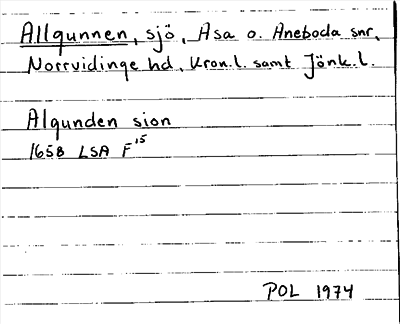 Allgunnen, sjö, Asa o. Aneboda snr,
Norrvidinge hd, Kron.l. samt Jönk.l.
Algunden siön
1658 LSA F 15
POL 1974